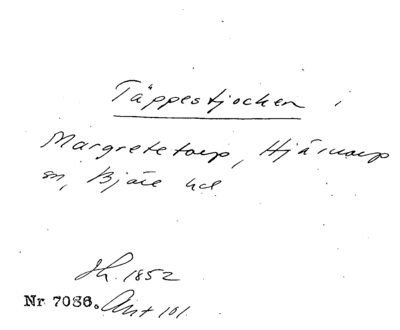 Täppestjocken i
Margretetorp, Hjärnarp
sn, Bjäre hd
Sh. 1852
Nr 7086. Ant 101.